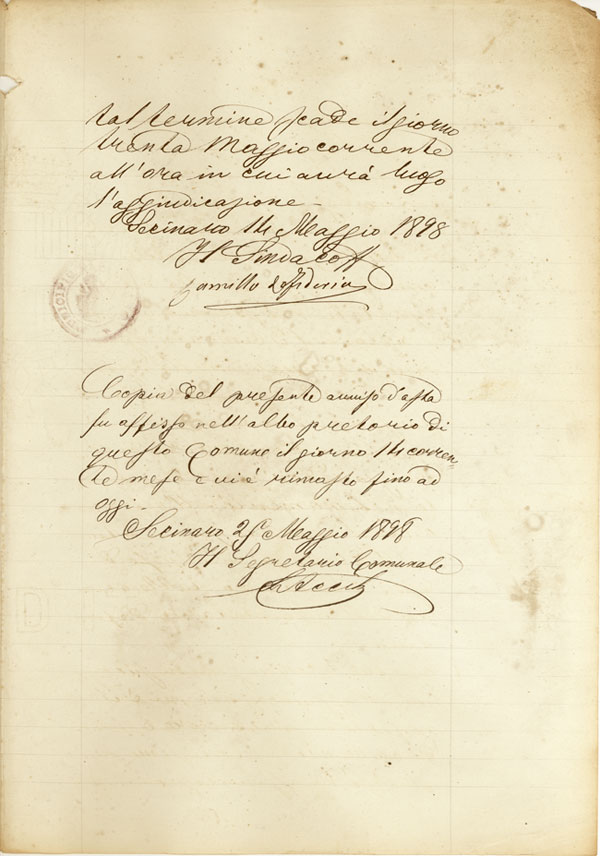 tal termine scade il giorno
trenta Maggio corrente
all'ora in cui avrà luogo
l'aggiudicazione -
Secinaro 14 Maggio 1898
Il Sindaco ff
Camillo
Copia del presente avviso d'asta
fu affisso nell'albo pretorio di
questo Comune il giorno 14 corren-
te mese e vi è rimasto fino ad
oggi -
Secinaro Maggio 1898
Il Segretario Comunale